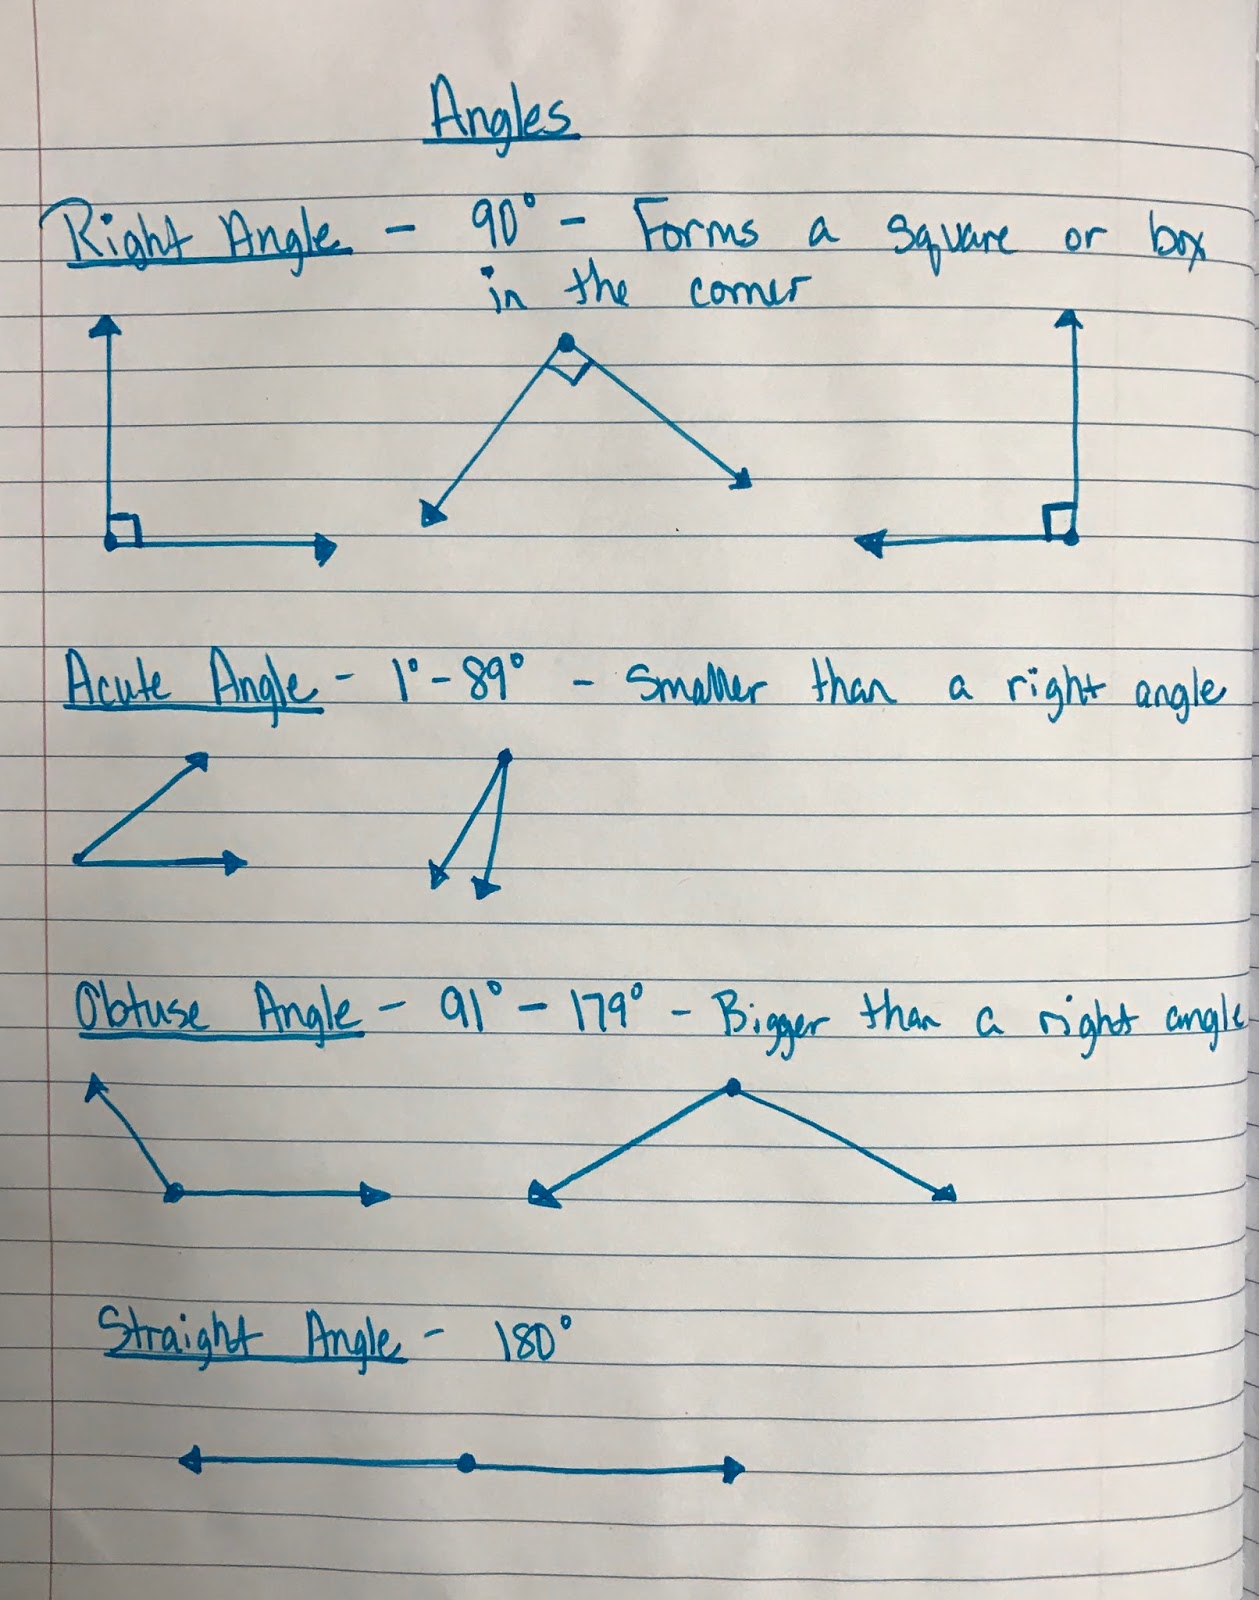 Angles
Right Angle - 90° - Forms a square or box
in the corner
Acute Angle - 1° - 89° - Smaller than a right angle
Obtuse Angle - 91° - 179° - Bigger than a right angle
Straight Angle - 180°